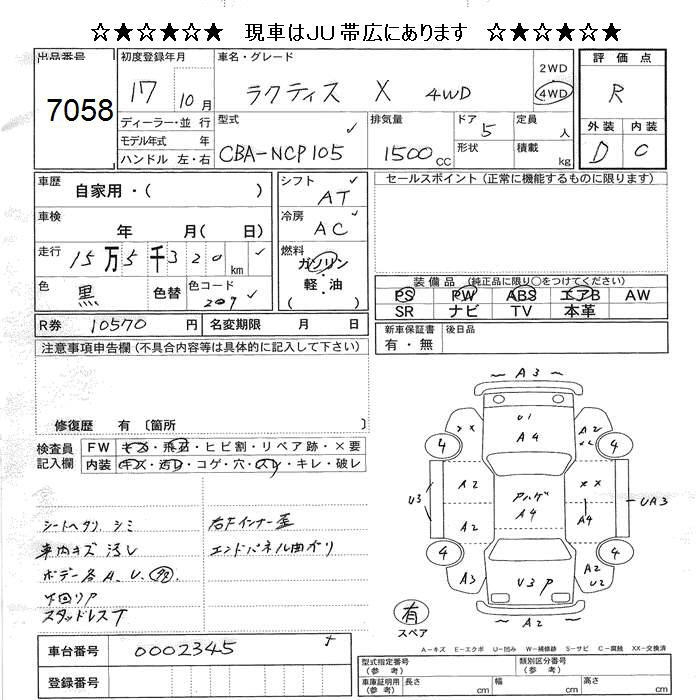 ☆★☆★☆★ 現車はJU帯広にあります ☆★☆★☆★
出品番号 初度登録年月 車名・グレード 評価点
7058 17 10月 ラクティス X 4WD 2WD 4WD R
ディーラー・並行 型式 排気量 ドア 定員 外装 内装
モデル年式 年 CBA-NCP105 1500CC 5 人 D C
ハンドル 左・右 形状 積載 kg
車歴 自家用・( ) シフト AT セールスポイント(正常に機能するものに限ります)
車検 年 月( 日) 冷房 AC
走行 15万5千320km 燃料 ガソリン・軽・油 ( )
色 黒 色替 色コード 209 装備品(純正品に限り○をつけてください)
PS PW ABS エアB AW
SR ナビ TV 本革
R券 10570円 名変期限 月 日 新車保証書 有・無 後日品
注意事項申告欄(不具合内容等は具体的に記入して下さい)
修復歴 有〔箇所 〕
検査員記入欄 FW キズ・飛石・ヒビ割・リペア跡・×要
内装 キズ・汚れ・コゲ・穴・スレ・キレ・破レ
シートヘタリ、シミ 右Fインナー歪
車内キズ汚レ エンドパネル曲ガリ
ボデー各A.U.
下回りP
スタッドレスT
A3
U1
A4
×× A2
4 4
A2 アハゲ ××
U3 A4 UA3
A2 A4
4 4
A3 U3P A2 U2
A2
有
スペア
A-キズ E-エクボ U-凹み W-補修跡 S-サビ C-腐蝕 XX-交換済
車台番号 0002345
登録番号
型式指定番号(参考) 類別区分番号(参考)
車庫証明用(参考) 長さ cm 幅 cm 高さ cm